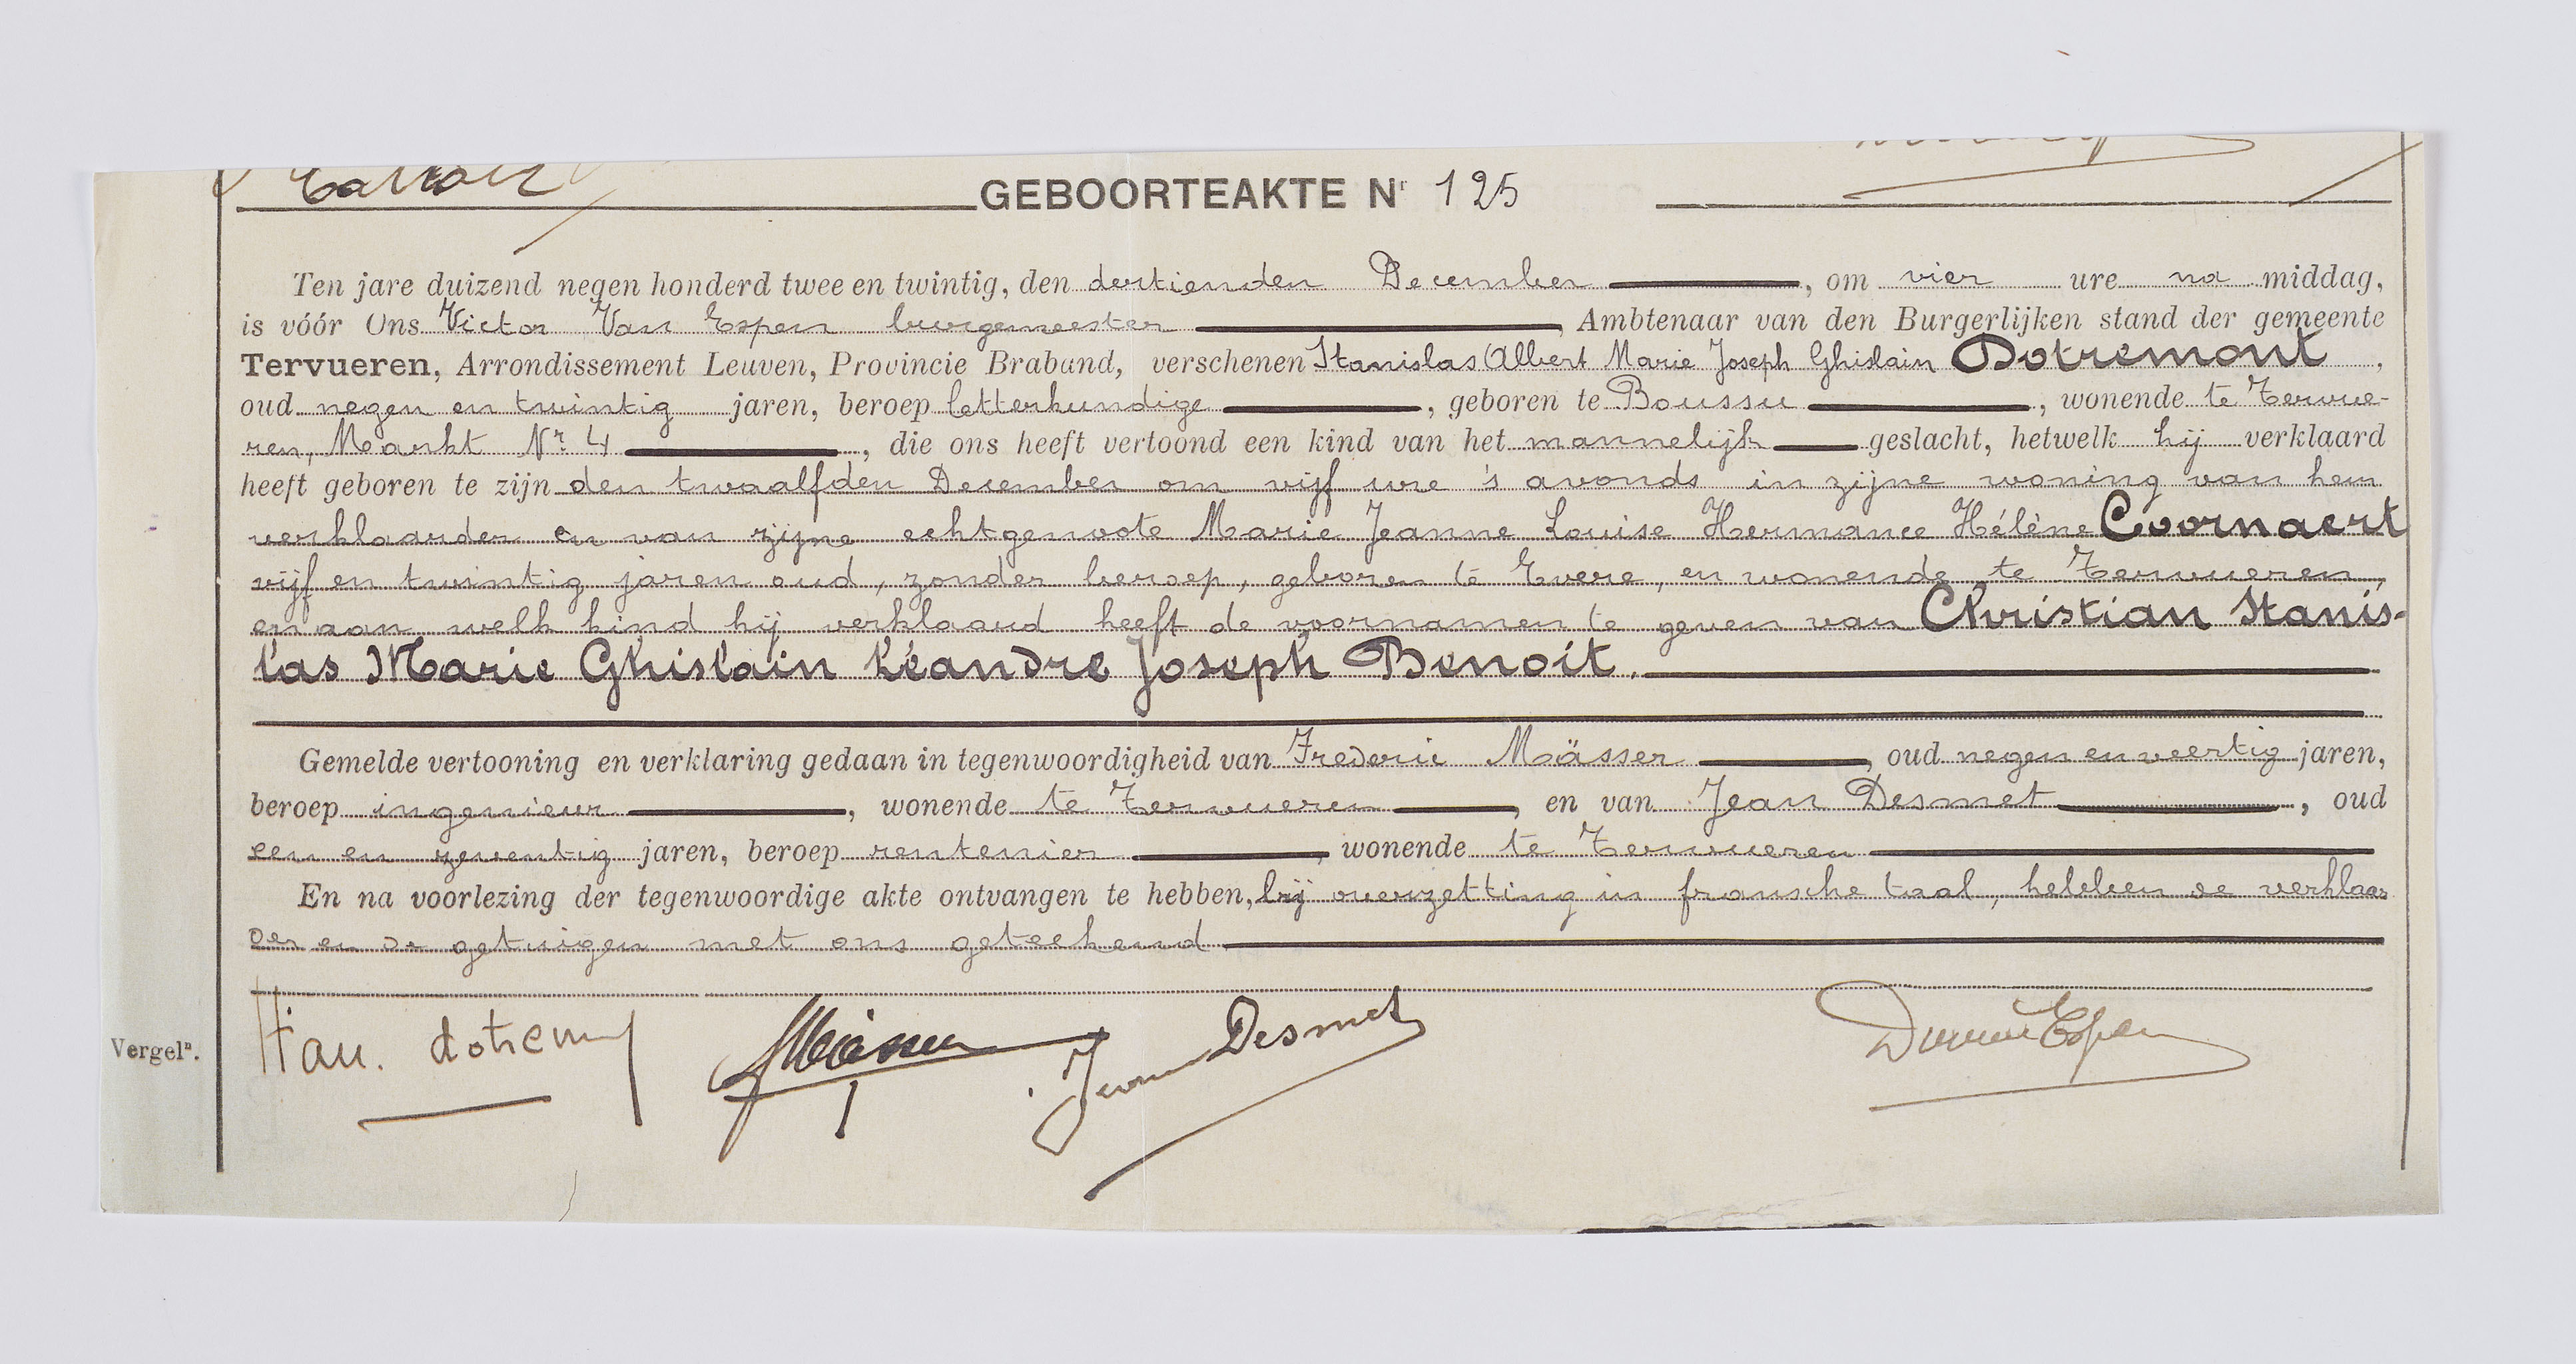 GEBOORTEAKTE Nr 125
Ten jare duizend negen honderd twee en twintig, den dertienden December, om vier ure na middag,
is vóór Ons Victor Van Espen burgemeester Ambtenaar van den Burgerlijken stand der gemeente
Tervueren, Arrondissement Leuven, Provincie Braband, verschenen Stanislas Albert Marie Joseph Ghislain Dotremont,
oud negen en twintig jaren, beroep letterkundige, geboren te Boussu, wonende te Tervue-
ren, Markt Nr 4, die ons heeft vertoond een kind van het mannelijk geslacht, hetwelk hij verklaard
heeft geboren te zijn den twaalfden December om vijf ure 's avonds in zijne woning van hem
verklaarder en van zijne echtgenoote Marie Jeanne Louise Hermance Hélène Coornaert
vijf en twintig jaren oud, zonder beroep, geboren te Evere, en wonende te Tervueren,
en aan welk kind hij verklaard heeft de voornamen te geven van Christian Stanis-
las Marie Ghislain Léandre Joseph Benoit.
Gemelde vertooning en verklaring gedaan in tegenwoordigheid van Frederic Mässer, oud negen en veertig jaren,
beroep ingenieur, wonende te Tervueren, en van Jean Desmet, oud
een en zeventig jaren, beroep rentenier, wonende te Tervueren
En na voorlezing der tegenwoordige akte ontvangen te hebben, bij overzetting in fransche taal, hebben de verklaar
der en de getuigen met ons geteekend
Vergeln.
Stan. dotremt
Jean Desmet